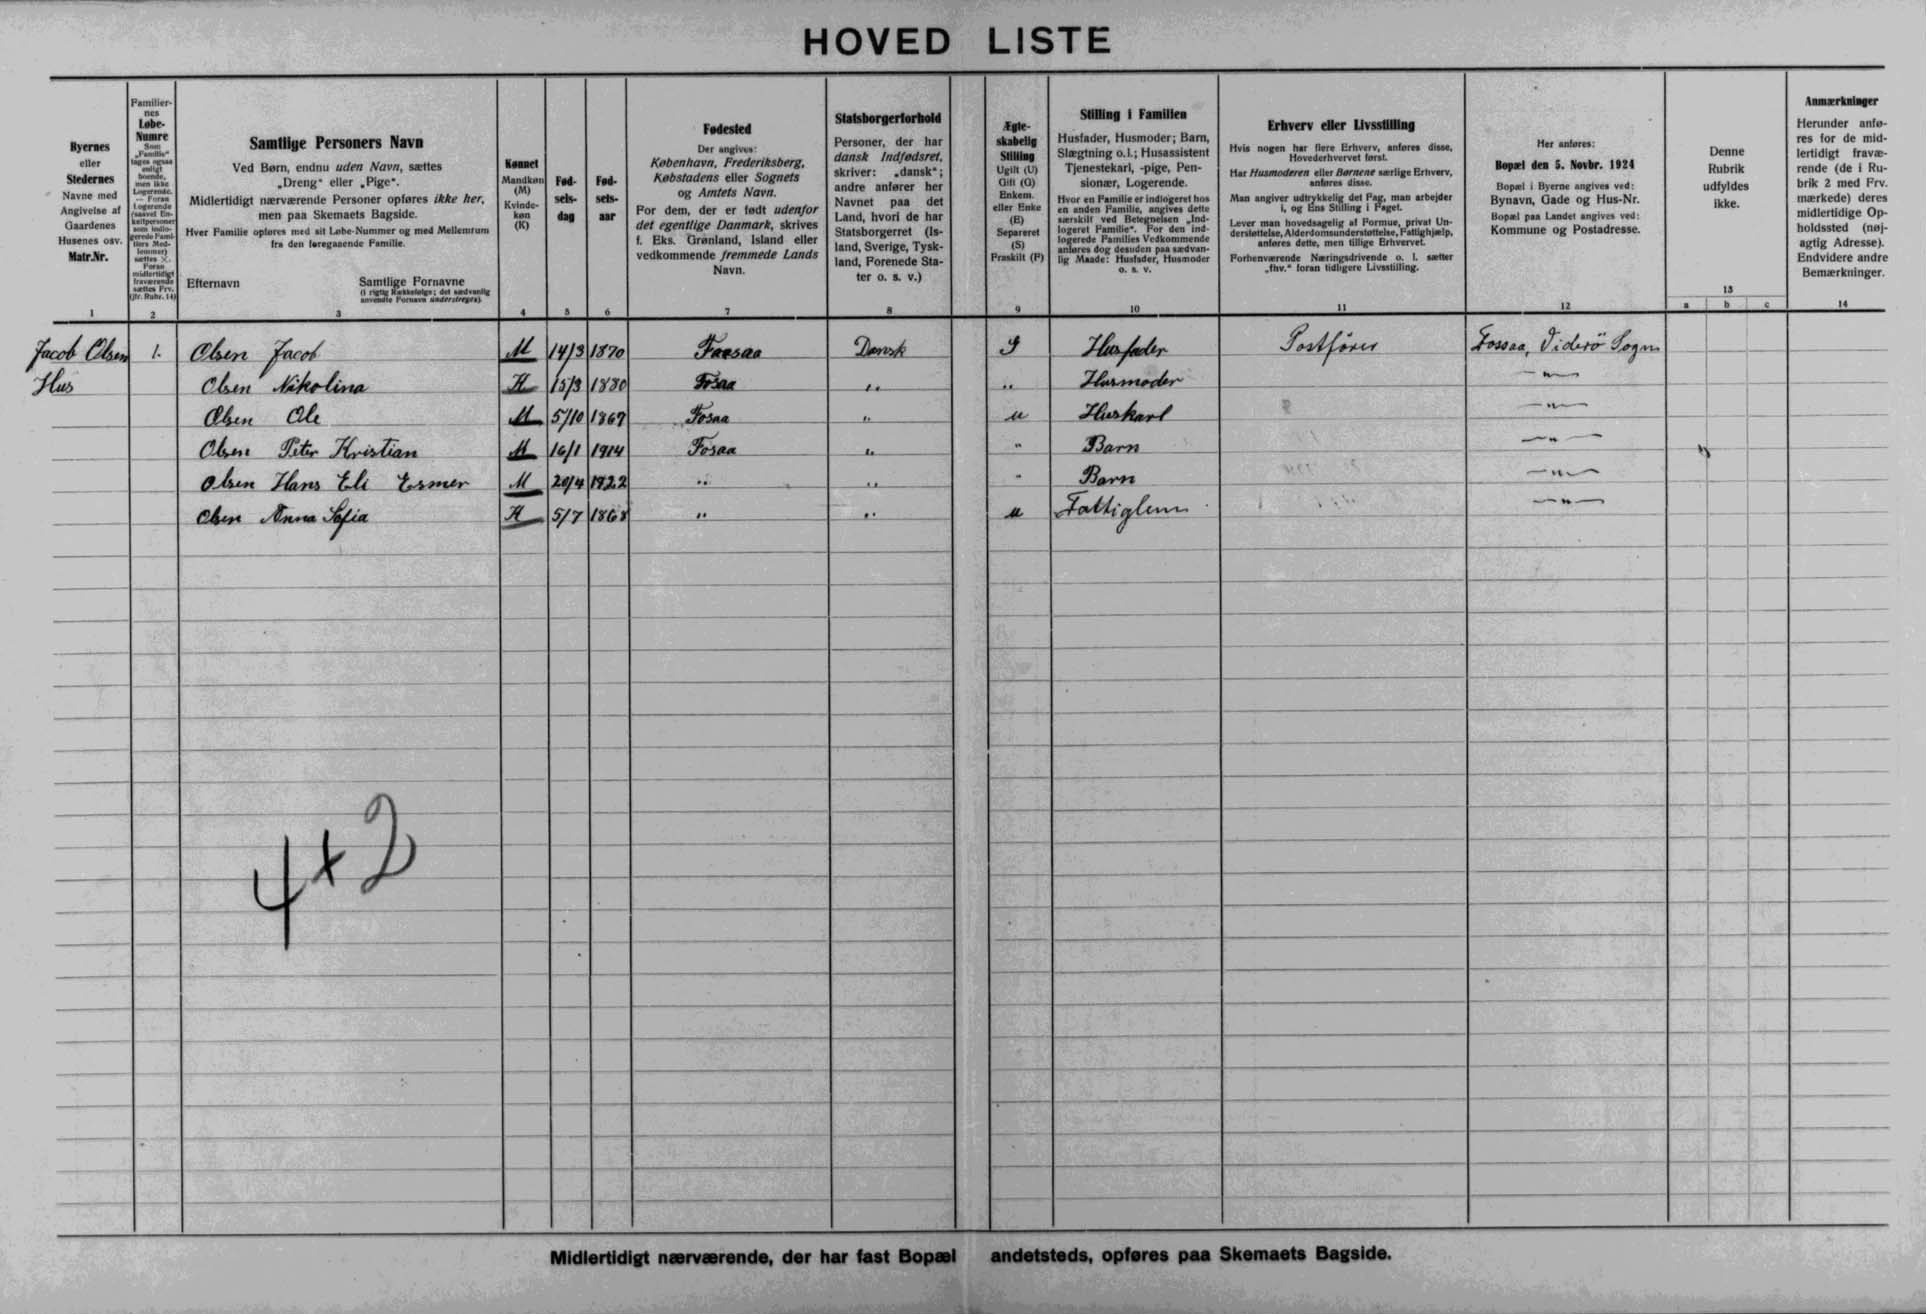 HOVED LISTE
Byernes
eller
Stedernes
Navne med
Angivelse af
Gaardenes
Husenes osv.
Matr.Nr.
1
Familier-
nes
Løbe-
Numre
Som
„Familie"
tages ogsaa
enligt
boende,
men ikke
Logerende.
— Foran
Logerende
(saavel En-
keltpersoner
som indlo-
gerede Fami-
liers Med-
lemmer)
sættes ×.
Foran
midlertidigt
fraværende
sættes Frv.
(jfr. Rubr. 14)
2
Samtlige Personers Navn
Ved Børn, endnu uden Navn, sættes
„Dreng" eller „Pige".
Midlertidigt nærværende Personer opføres ikke her,
men paa Skemaets Bagside.
Hver Familie opføres med sit Løbe-Nummer og med Mellemrum
fra den foregaaende Familie.
Efternavn
Samtlige Fornavne
(i rigtig Rækkefølge; det sædvanlig
anvendte Fornavn understreges).
3
Kønnet
Mandkøn
(M)
Kvinde-
køn
(K)
4
Fød-
sels-
dag
5
Fød-
sels-
aar
6
Fødested
Der angives:
København, Frederiksberg,
Købstadens eller Sognets
og Amtets Navn.
For dem, der er født udenfor
det egentlige Danmark, skrives
f. Eks. Grønland, Island eller
vedkommende fremmede Lands
Navn.
7
Statsborgerforhold
Personer, der har
dansk Indfødsret,
skriver: „dansk";
andre anfører her
Navnet paa det
Land, hvori de har
Statsborgerret (Is-
land, Sverige, Tysk-
land, Forenede Sta-
ter o. s. v.)
8
Ægte-
skabelig
Stilling
Ugift (U)
Gift (G)
Enkem.
eller Enke
(E)
Separeret
(S)
Fraskilt (F)
9
Stilling i Familien
Husfader, Husmoder; Barn,
Slægtning o.l.; Husassistent
Tjenestekarl, -pige, Pen-
sionær, Logerende.
Hvor en Familie er indlogeret hos
en anden Familie, angives dette
særskilt ved Betegnelsen „Ind-
logeret Familie". For den ind-
logerede Families Vedkommende
anføres dog desuden paa sædvan-
lig Maade: Husfader, Husmoder
o. s. v.
10
Erhverv eller Livsstilling
Hvis nogen har flere Erhverv, anføres disse,
Hovederhvervet først.
Har Husmoderen eller Børnene særlige Erhverv,
anføres disse.
Man angiver udtrykkelig det Fag, man arbejder
i, og Ens Stilling i Faget.
Lever man hovedsagelig af Formue, privat Un-
derstøttelse, Alderdomsunderstøttelse, Fattighjælp,
anføres dette, men tillige Erhvervet.
Forhenværende Næringsdrivende o. l. sætter
„fhv." foran tidligere Livsstilling.
11
Her anføres:
Bopæl den 5. Novbr. 1924
Bopæl i Byerne angives ved:
Bynavn, Gade og Hus-Nr.
Bopæl paa Landet angives ved:
Kommune og Postadresse.
12
Denne
Rubrik
udfyldes
ikke.
13
a b c
Anmærkninger
Herunder anfø-
res for de mid-
lertidigt fravæ-
rende (de i Ru-
brik 2 med Frv.
mærkede) deres
midlertidige Op-
holdssted (nøj-
agtig Adresse).
Endvidere andre
Bemærkninger.
14
Jacob Olsen 1. Olsen Jacob M 14/3 1870 Fossaa Dansk G Husfader Postfører Fossaa, Viderö Sogn
Hus Olsen Nikolina K 15/3 1880 Fosaa " " Husmoder — " —
Olsen Ole M 5/10 1867 Fosaa " u Huskarl — " —
Olsen Peter Kristian M 16/1 1914 Fosaa " " Barn — " —
Olsen Hans Eli Esmer M 20/4 1922 " " " Barn — " —
Olsen Anna Sofia K 5/7 1868 " " u Fattiglem — " —
4 + 2
Midlertidigt nærværende, der har fast Bopæl andetsteds, opføres paa Skemaets Bagside.